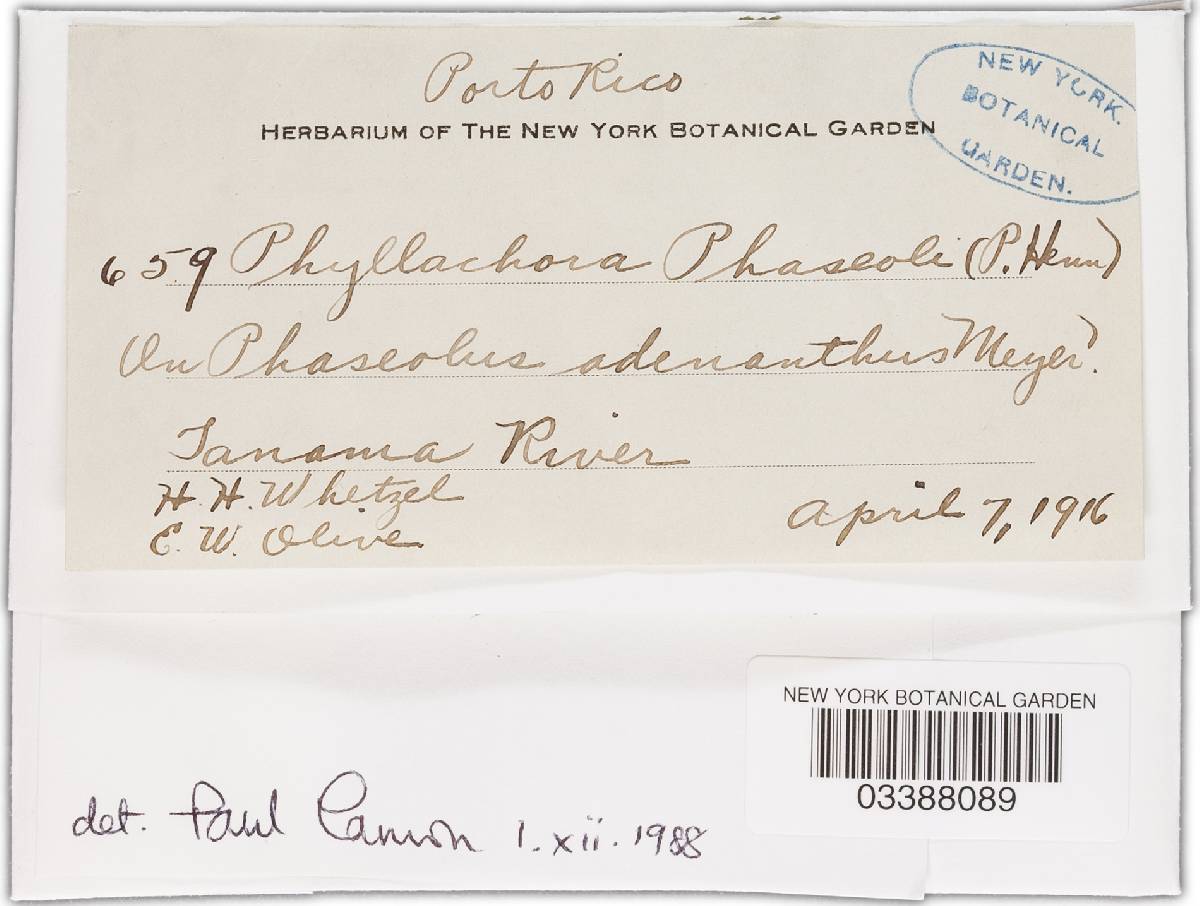 Porto Rico
HERBARIUM OF THE NEW YORK BOTANICAL GARDEN
NEW YORK.
BOTANICAL
GARDEN.
659 Phyllachora Phaseoli (P. Henn)
On Phaseolus adenanthus Meyer.
Tanama River
H. H. Whetzel
E. W. Olive
April 7, 1916
NEW YORK BOTANICAL GARDEN
03388089
det. Paul Cannon 1.xii.1988